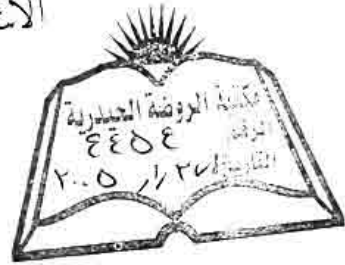 مكتبة الروضة الحيدرية
الرقم ٤٤٥٤
التاريخ
٢٠٠٥